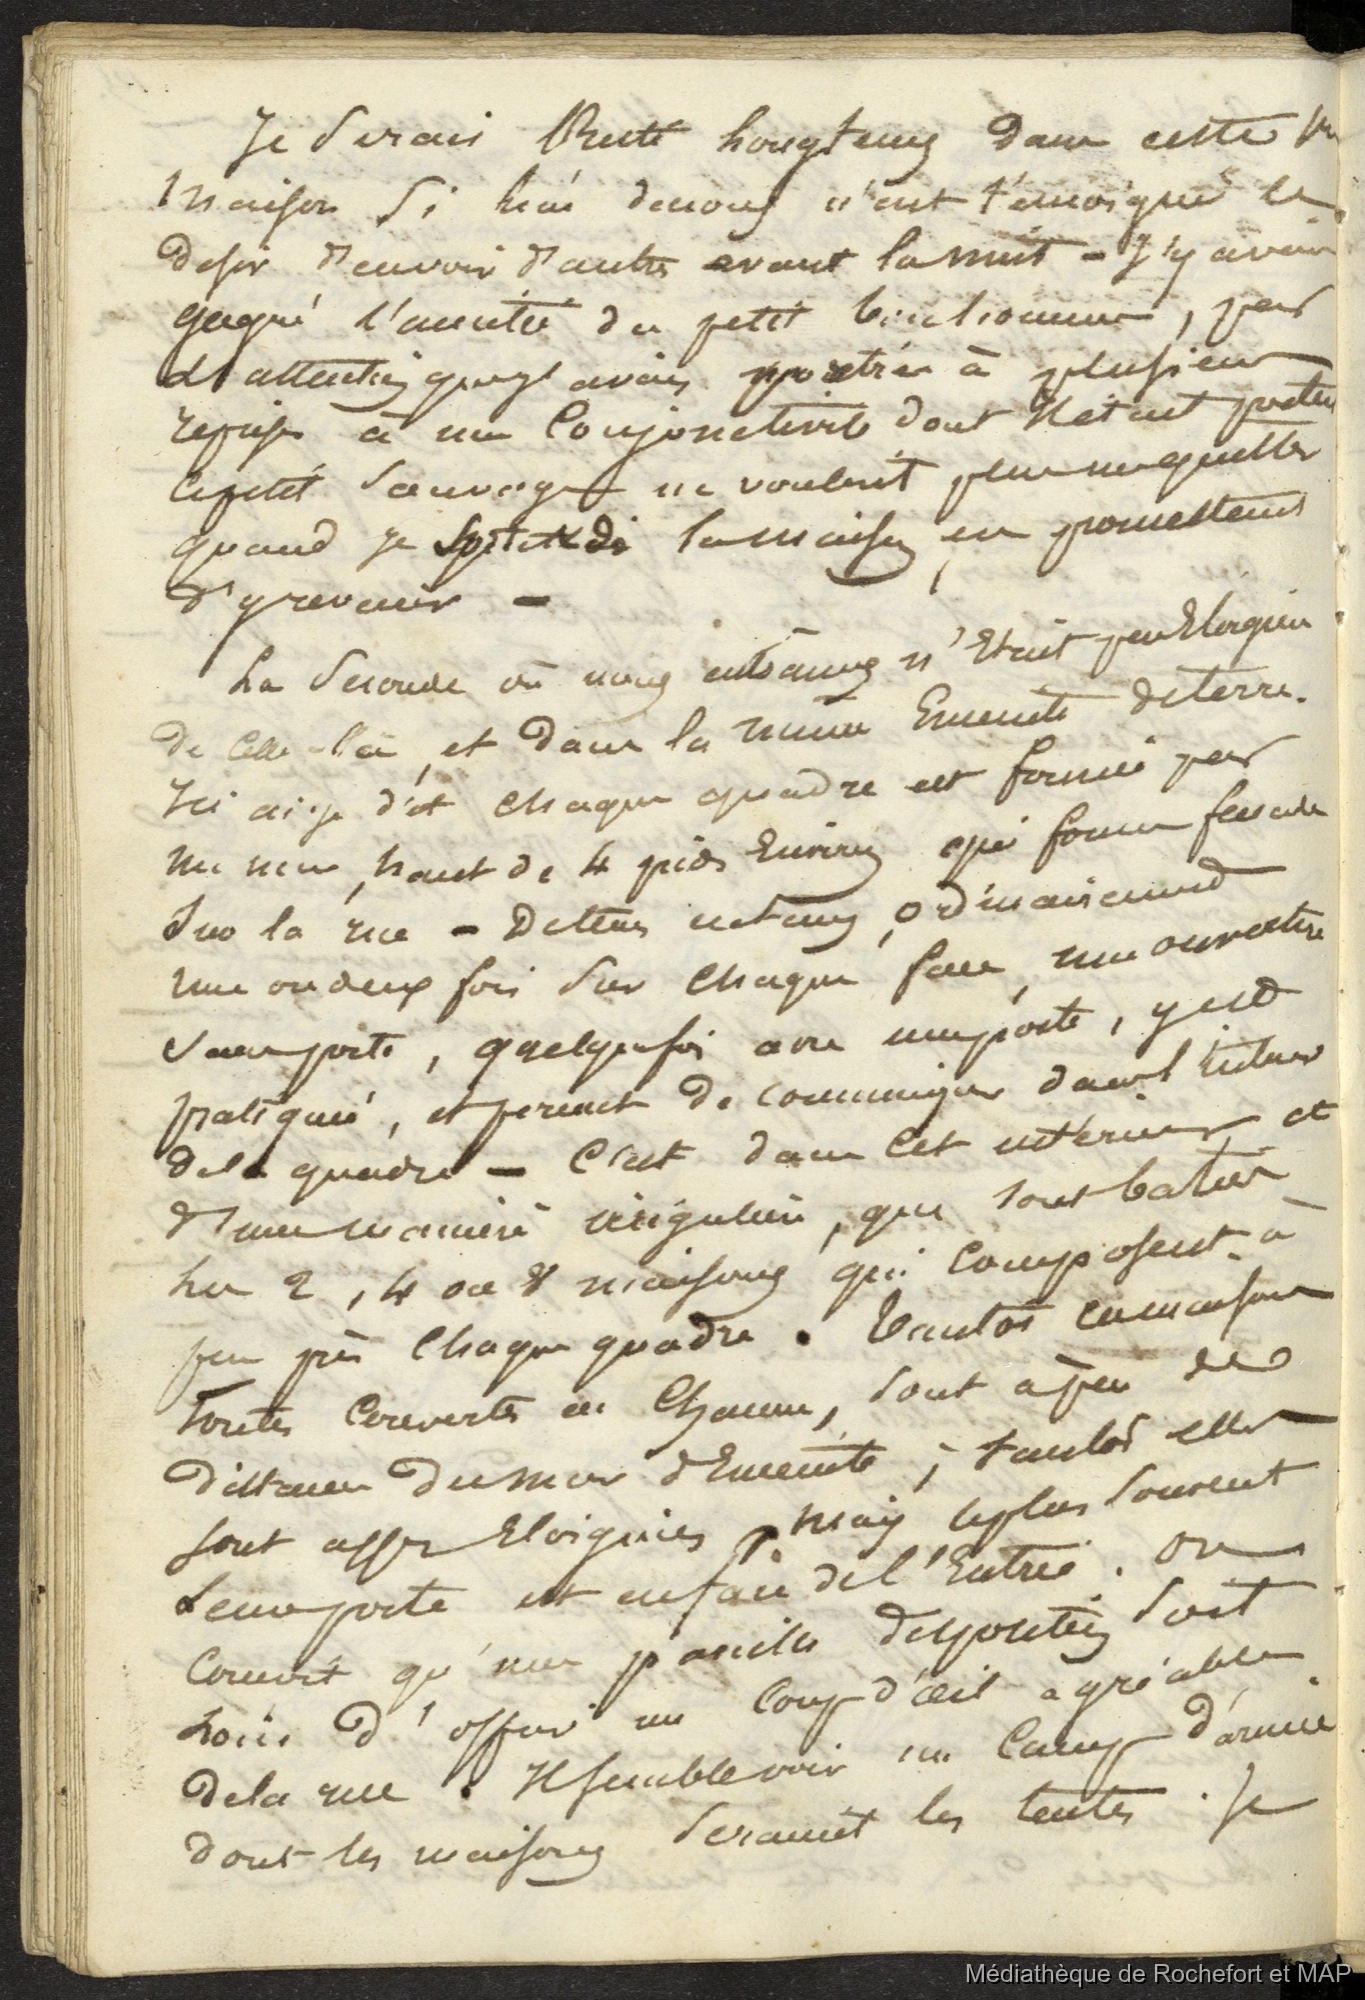 Je serais Resté longtems dans cette
maison si l'un denous n'eut témoigné le
desir d'envoir d'autres avant la nuit - J'y avais
gagné l'amitié du petit bonhomme, par
d'attention que j'avais portée à plusieurs
reprises à une Conjonctivite dont il était porteur
le petit Sauvage ne voulait plus me quitter
quand je sortit de la maison, en promettant
d'y revenir -
La Seconde où nous entrames n'était pas Eloignée
de Celle-là, et dans la même Enceinte de terre.
Ici ai-je dit chaque quadre est formé par
un mur, haut de 4 pieds Environ qui forme facade
Sur la rue - De tems en tems, ordinairement
une ou deux fois sur chaque face, une ouverture
sans porte, quelquefois avec une porte, y est
pratiquée, et permet de communiquer dans l'intérieur
de la quadre - C'est dans cet intérieur, et
d'une manière irrégulière, que sont baties
les 2, 4 ou 8 maisons qui composent à
peu près chaque quadre. Tantôt ces maisons
toutes couvertes en chaume, sont à peu de
distance du mur d'Enceinte ; tantôt elles
sont assez Eloignées, mais le plus souvent
Leur porte est en face de l'Entrée. On
Conçoit qu'une pareille disposition soit
loin d'offrir un coup d'œil agréable
de la rue. Il semble voir un Camp d'armée
dont les maisons seraient les tentes. Je
Médiathèque de Rochefort et MAP